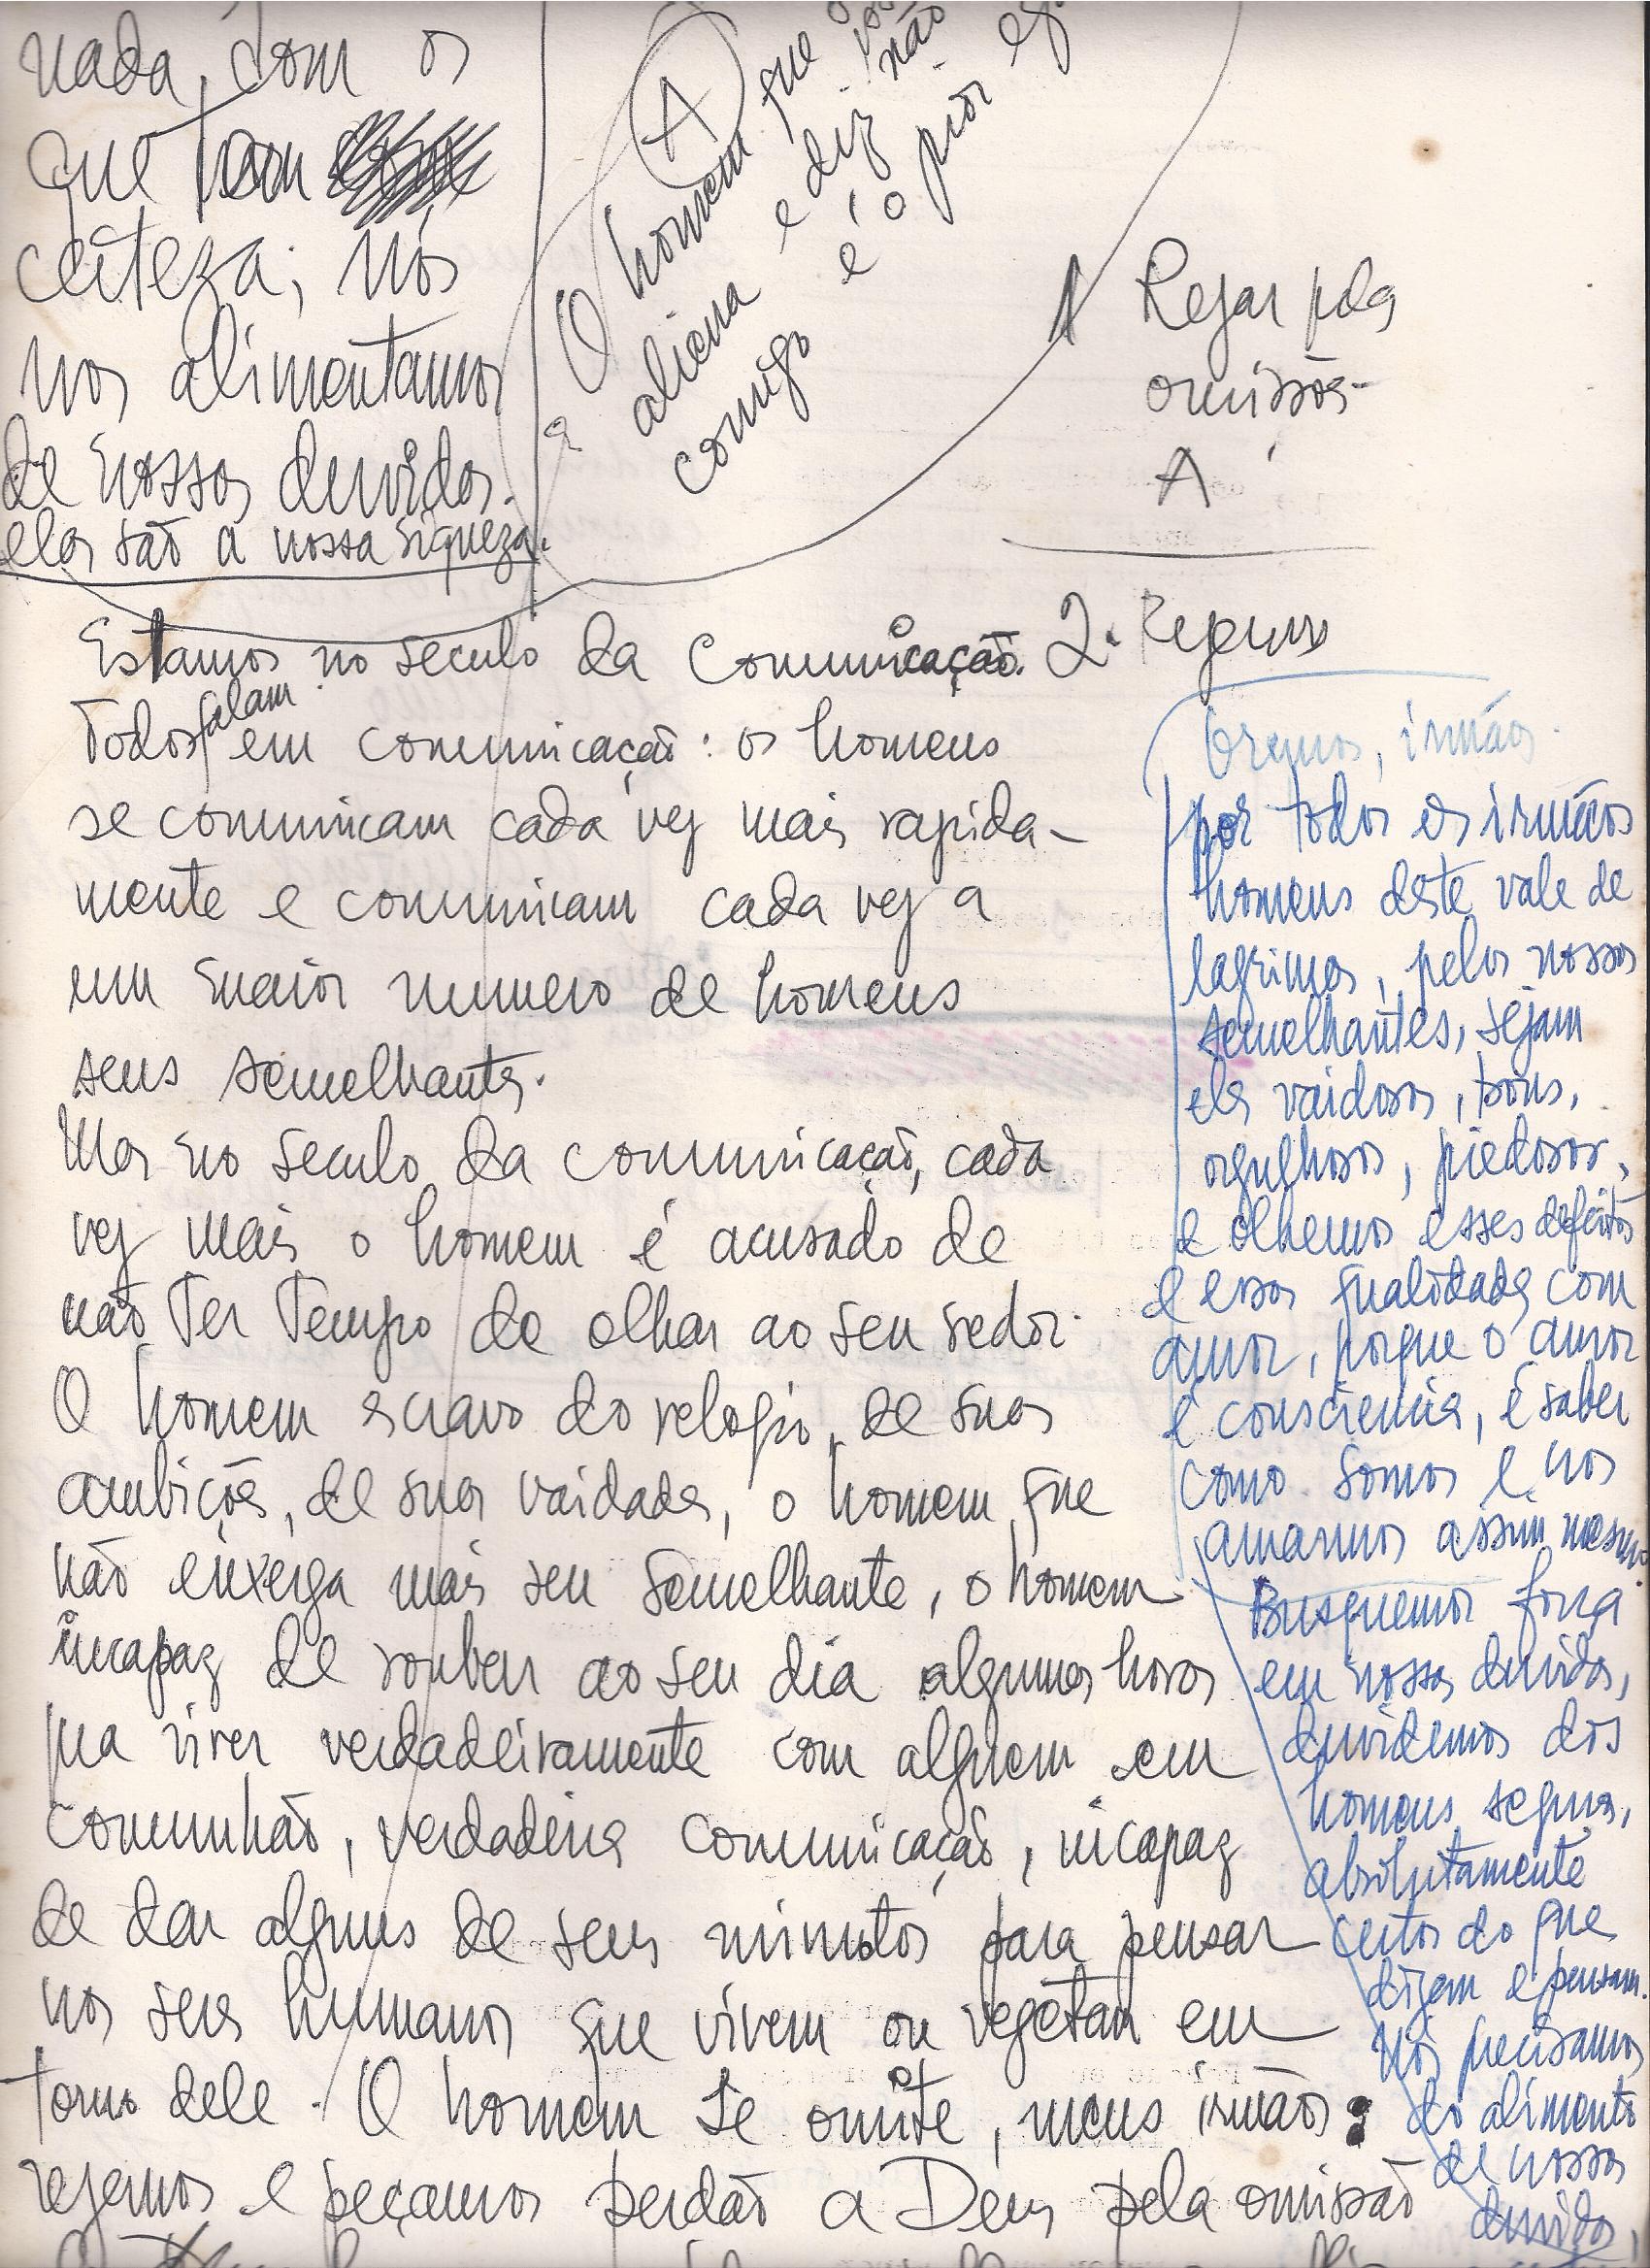 nada, com os
que tem
certeza; nós
nos alimentamos
de nossas duvidas.
elas são a nossa riqueza.
A
O homem que
aliena e diz não
comigo é o pior
A Rezar pelas
omissões
A
2.
Estamos no seculo da comunicação.
Todos falam em comunicação: os homens
se comunicam cada vez mais rapida-
mente e comunicam cada vez a
um maior numero de homens
seus semelhantes.
Mas no seculo da comunicação, cada
vez mais o homem é acusado de
não ter tempo de olhar ao seu redor.
O homem escravo do relogio, de suas
ambições, de suas vaidades, o homem que
não enxerga mais seu semelhante, o homem
incapaz de roubar ao seu dia algumas horas
pra viver verdadeiramente com alguem em
comunhão, verdadeira comunicação, incapaz
de dar alguns de seus minutos para pensar
nos seres humanos que vivem ou vegetam em
torno dele. O homem se omite, meus irmãos:
rezemos e peçamos perdão a Deus pela omissão
Oremos, irmãos
por todos os irmãos
homens deste vale de
lagrimas, pelos nossos
semelhantes, sejam
eles vaidosos, bons,
orgulhosos, piedosos,
e olhemos esses defeitos
e essas qualidades com
amor, porque o amor
é consciencia, é saber
como somos e nos
amarmos assim mesmo.
Busquemos força
em nossas duvidas,
duvidemos dos
homens seguros,
absolutamente
certos do que
dizem e pensam.
Nós precisamos
do alimento
de nossas
duvidas